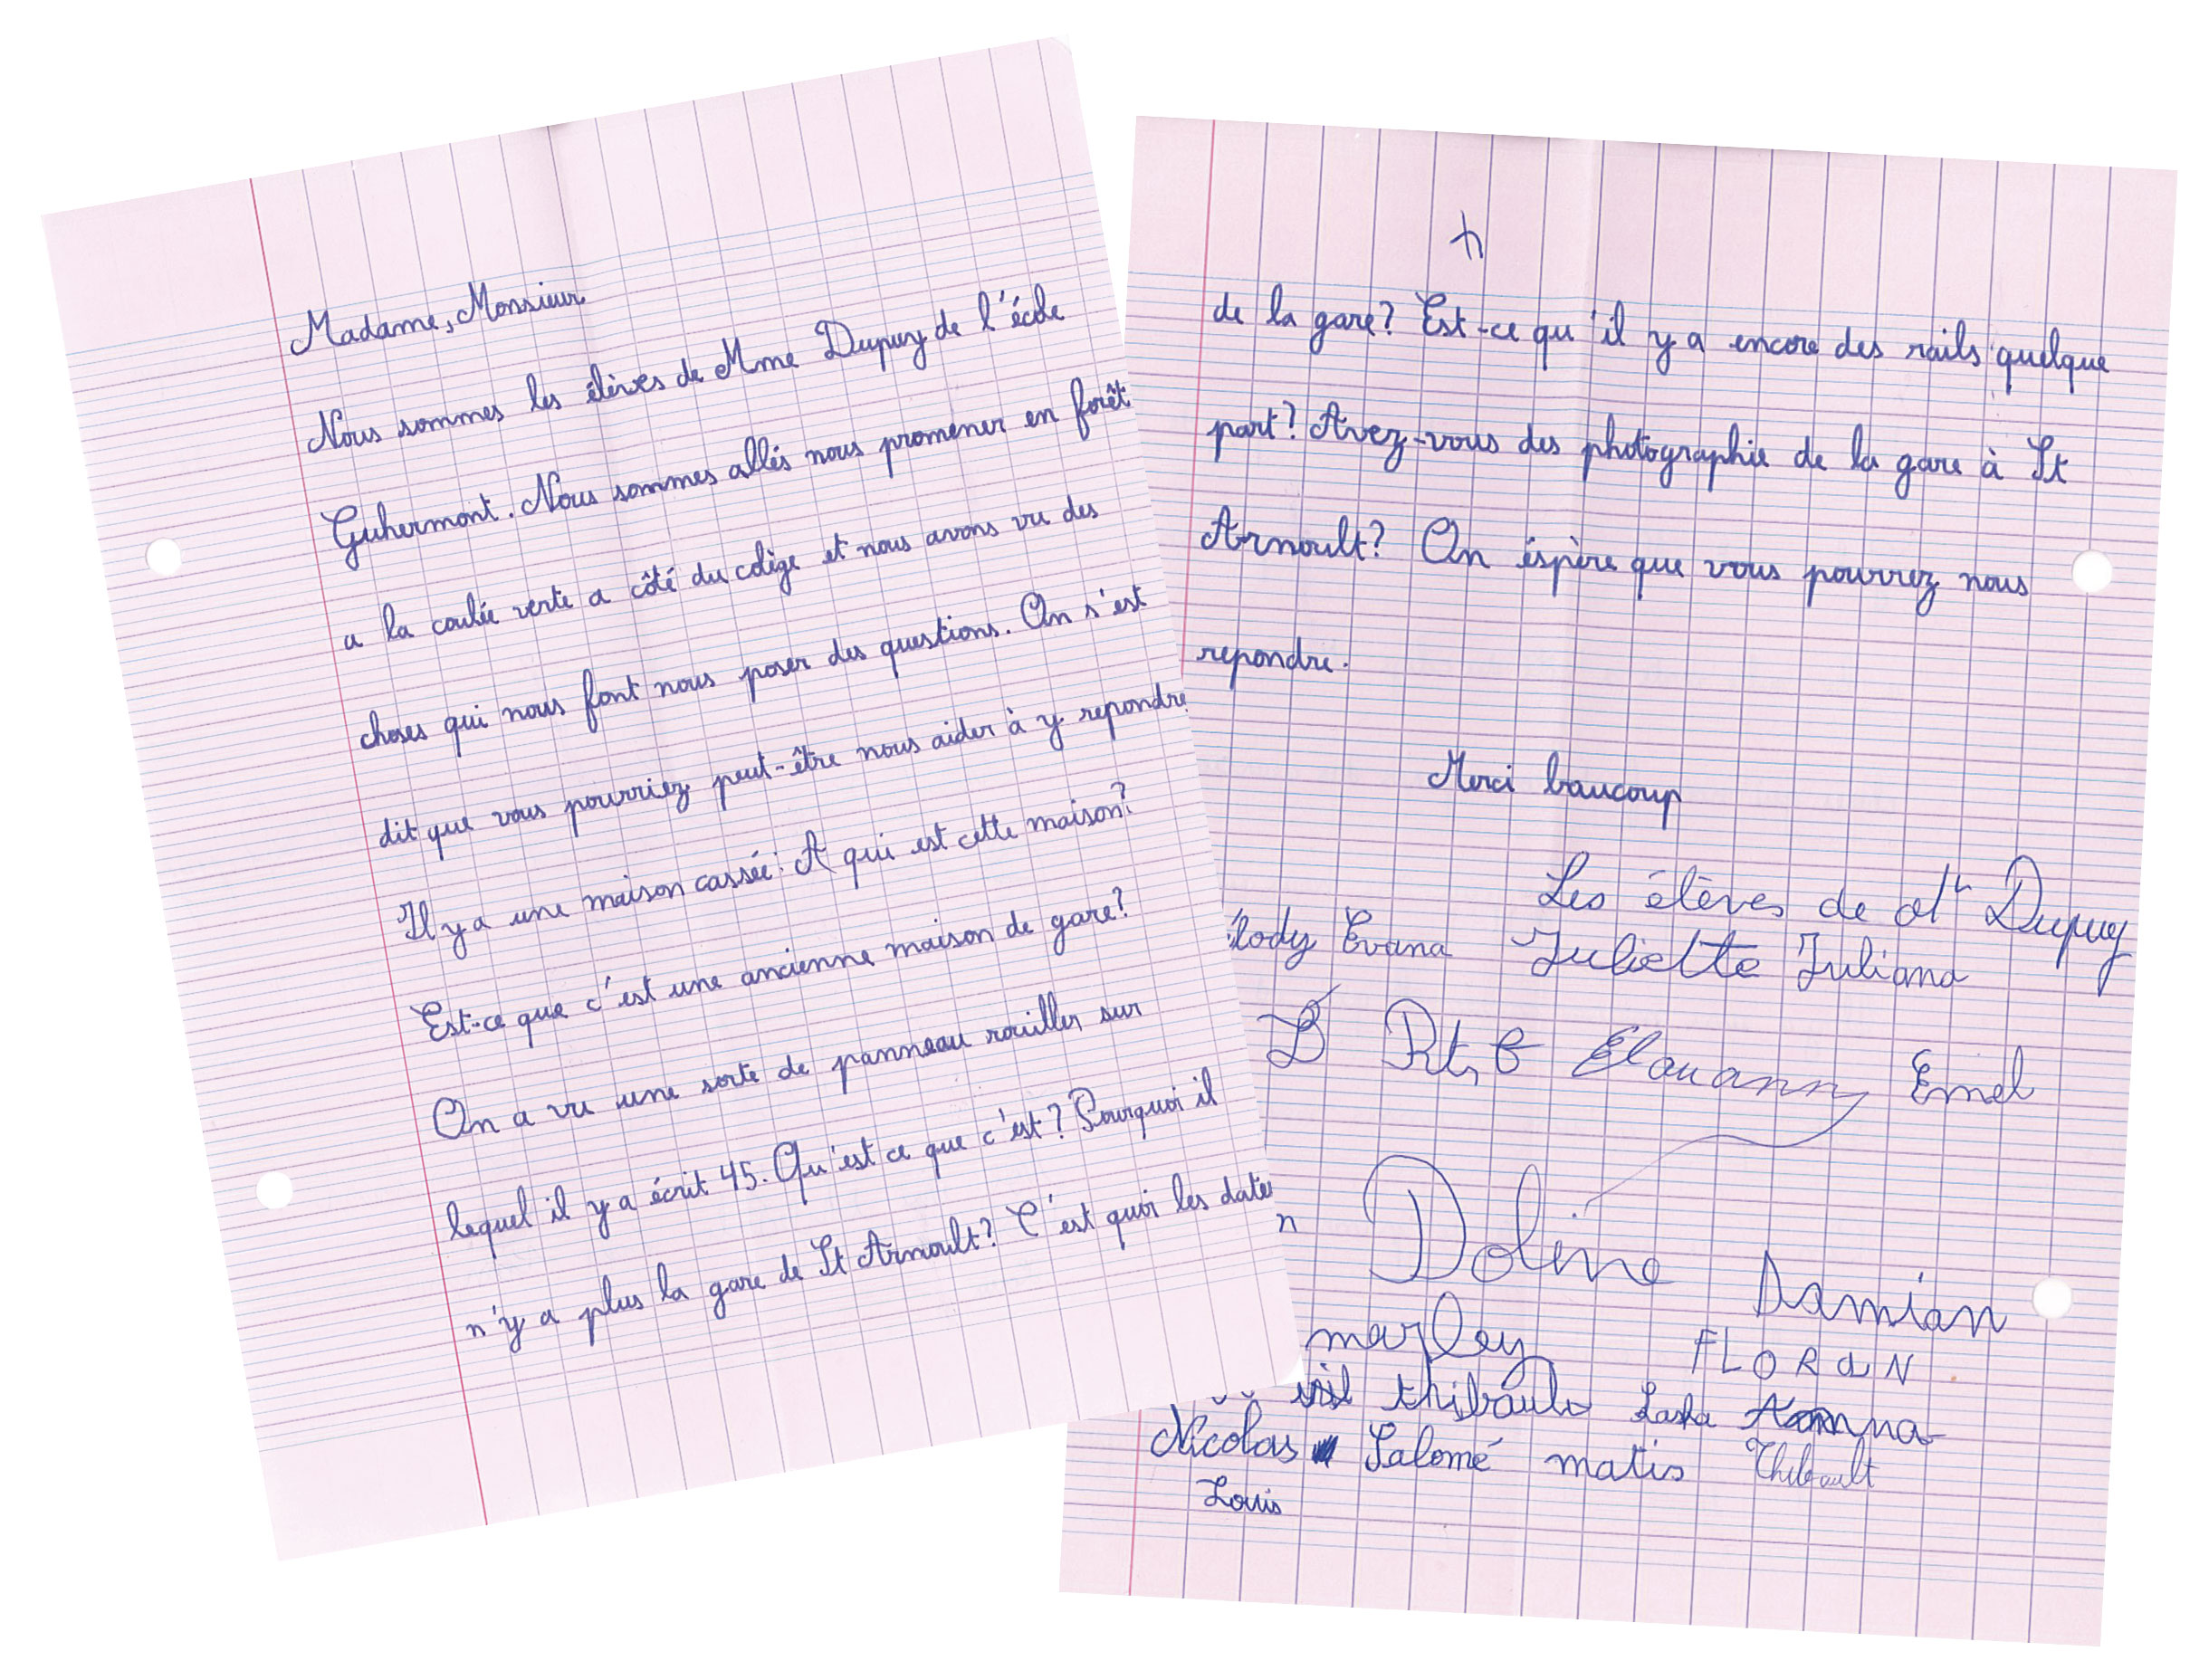 Madame, Monsieur
Nous sommes les élèves de Mme Dupuy de l'école
Guhermont. Nous sommes allés nous promener en forêt
a la coulée verte a côté du colège et nous avons vu des
choses qui nous font nous poser des questions. On s'est
dit que vous pourriez peut-être nous aider à y repondre
Il y a une maison cassée: A qui est cette maison?
Est-ce que c'est une ancienne maison de gare?
On a vu une sorte de panneau rouiller sur
lequel il y a écrit 45. Qu'est ce que c'est? Pourquoi il
n'y a plus la gare de St Arnoult? C'est quoi les dates
de la gare? Est-ce qu'il y a encore des rails quelque
part? Avez-vous des photographie de la gare à St
Arnoult? On éspère que vous pourrez nous
repondre.
Merci baucoup
Les élèves de Dupuy
Evana Juliette Juliana
Emel
n Doline Damian
marley FLORaN
thibault
Nicolas Salomé matis Thibault
Louis